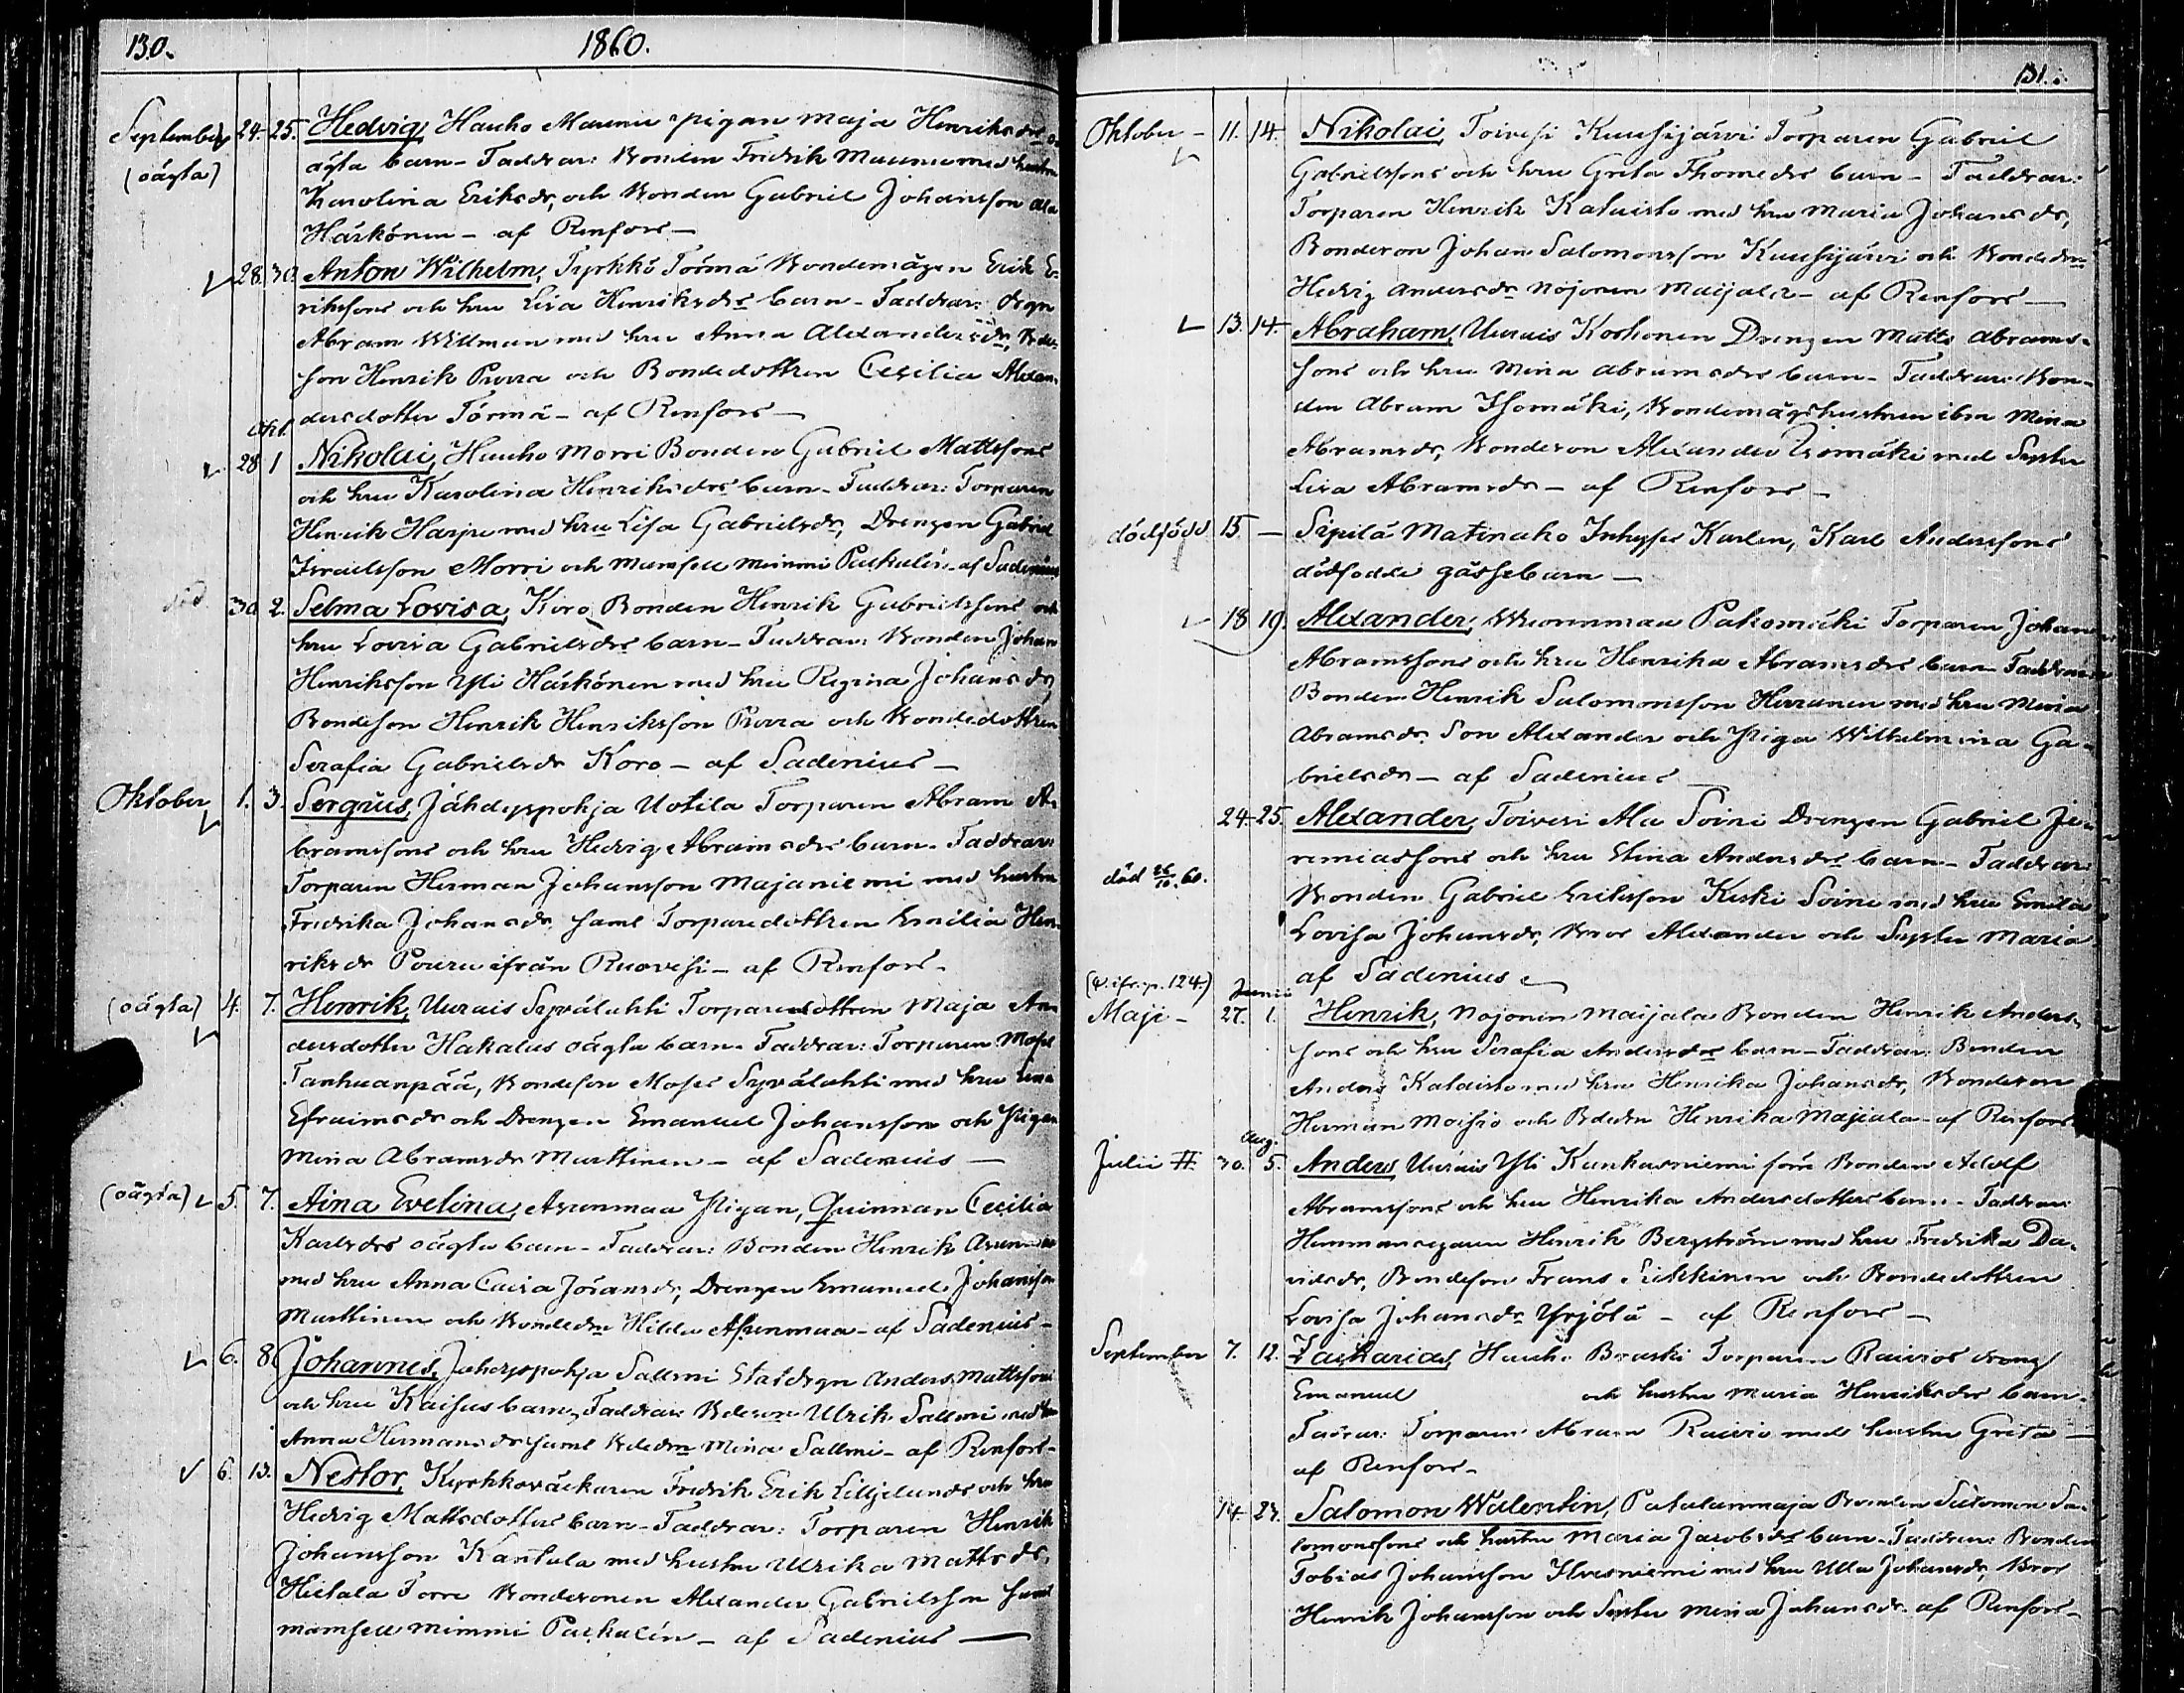 130.
1860.
September 24. 25. Hedvig, Hauho Maunu pigan Maja Henriksdrs o
(oägta) ägta barn - Faddrar: Bonden Fredrik Maunu med hustru
Karolina Eriksdr, och Bonden Gabriel Johansson Ala
Härkönen - af Renfors -
28. 30. Anton Wilhelm, Tyrkkö Törmä Bondemågen Erik E-
rikssons och hru Lisa Henriksdrs barn - Faddrar: drgn
Abram Willman med hru Anna Alexandersdr, Bde-
son Henrik Purra och Bondedottren Cecilia Alexan-
dersdotter Törmä - af Renfors -
Okt.
28 1 Nikolai, Hauho Morri Bonden Gabriel Mattssons
och hru Karolina Henriksdrs barn - Faddrar: Torparen
Henrik Harju med hru Lisa Gabrielsdr, Drengen Gabriel
Israelsson Morri och Mamsell Mimmi Paskalin - af Sadenius
död 30 2. Selma Lovisa, Koro Bonden Henrik Gabrielssons och
hru Lovisa Gabrielsdrs barn - Faddrar: Bonden Johan
Henriksson Yli Härkönen med hru Regina Johansdr,
Bondeson Henrik Henriksson Purra och Bondedottren
Serafia Gabrielsdr Koro - af Sadenius -
Oktober 1. 3. Sergius, Jähdyspohja Uotila Torparen Abram A-
bramssons och hru Hedvig Abramsdrs barn - Faddrar:
Torparen Herman Johansson Majaniemi med hustru
Fredrika Johansdr, samt Torparedottren Emilia Hen-
riksdr Pouru ifrån Ruovesi - af Renfors -
(oägta) 4. 7. Henrik, Uurais Syväluhti Torparedottren Maja An-
dersdotter Hakalas oägta barn - Faddrar: Torparen Moses
Tanhuanpää, Bondeson Moses Syväluhti med hru
Efraimsdr och Drengen Emanuel Johansson och Pigan
Mina Abramsdr Marttinen - af Sadenius -
(oägta) 5. 7. Aina Evelina, Asunmaa Pigan, Qvinnan Cecilia
Karlsdrs oägta barn - Faddrar: Bonden Henrik Asunmaa
med hru Anna Caisa Jöransdr, Drengen Emanuel Johansson
Marttinen och Bondedrn Hilda Asunmaa - af Sadenius -
6. 8. Johannes, Jähdyspohja Sallmi Statdrgn Anders Mattssons
och hru Kaisas barn, Faddrar: Bdeson Ulrik Sallmi med hru
Anna Hermansdr samt Bdedrn Mina Sallmi - af Renfors -
6. 13. Nestor, Kyrkkoväckaren Fredrik Erik Liljelunds och hru
Hedvig Mattsdotters barn - Faddrar: Torparen Henrik
Johansson Kantala med hustru Ulrika Mattsdr,
Hietala Torre Bondesonen Alexander Gabrielsson samt
mamsell Mimmi Paskalin - af Sadenius -
131.
Oktober - 11. 14. Nikolai, Toivesi Kuusijärvi Torparen Gabriel
Gabrielssons och hru Greta Thomedrs barn - Faddrar:
Torparen Henrik Kataisto med hru Maria Johansdr,
Bondeson Johan Salomonsson Kuusijärvi och Bondedrn
Hedvig Andersdr Nojonen Maijala - af Renfors -
13. 14. Abraham, Uurais Koskonen Drengen Matts Abrams-
sons och hru Mina Abramsdrs barn - Faddrar: Bon-
den Abram Isomäki, Bondemågshustrun ibm Mina
Abramsdr, Bondeson Alexander Isomäki med Syster
Lisa Abramsdr - af Renfors -
dödfödd 15 - Sipilä Matinaho Inhyses Karlen, Karl Anderssons
dödfödde gåssebarn -
18 19. Alexander, Wuorenmaa Pakomäki Torparen Johan
Abramssons och hru Henrika Abramsdrs barn - Faddrar:
Bonden Henrik Salomonsson Herranen med hru Maria
Abramsdr, Son Alexander och Piga Wilhelmina Ga-
brielsdr - af Sadenius -
24. 25. Alexander, Toivesi Ala Soini Drengen Gabriel Je-
remiassons och hru Stina Andersdrs barn - Faddrar:
död 26/10. 60. Bonden Gabriel Eriksson Keski Soini med hru Emilia
Lovisa Johansdr, Bror Alexander och Syster Maria
af Sadenius -
(v. ifr. p. 124.) Junii
Maji - 27. 1. Henrik, Nojonen Maijala Bonden Henrik Anders-
sons och hru Serafia Andersdrs barn - Faddrar: Bonden
Anders Kataisto med hru Henrika Johansdr, Bondeson
Herman Moisio och Bdedrn Henrika Majiala - af Renfors
Aug.
Julii # 30. 5. Anders, Uurais Yli Kankasniemi förre Bonden Adolf
Abramssons och hru Henrika Andersdotters barn - Faddrar:
Hemmansegaren Henrik Bergström med hru Fredrika Da-
vidsdr, Bondeson Frans Sikkinen och Bondedottren
Lovisa Johansdr Yrjölä - af Renfors -
September 7. 12. Zacharias, Hauho Braski Torparen Raivios dreng
Emanuel och hustru Maria Henriksdrs barn.
Faddrar: Torparen Abram Raivio med hustru Greta -
af Renfors -
14 23. Salomon Walentin, Patalanmaja Bonden Salomon Sa-
lomonssons och hustru Maria Jacobsdrs barn - Faddrar: Bonden
Tobias Johansson Ilvesniemi med hru Ulla Johansdr, Bror
Henrik Johansson och Syster Mina Johansdr - af Renfors -